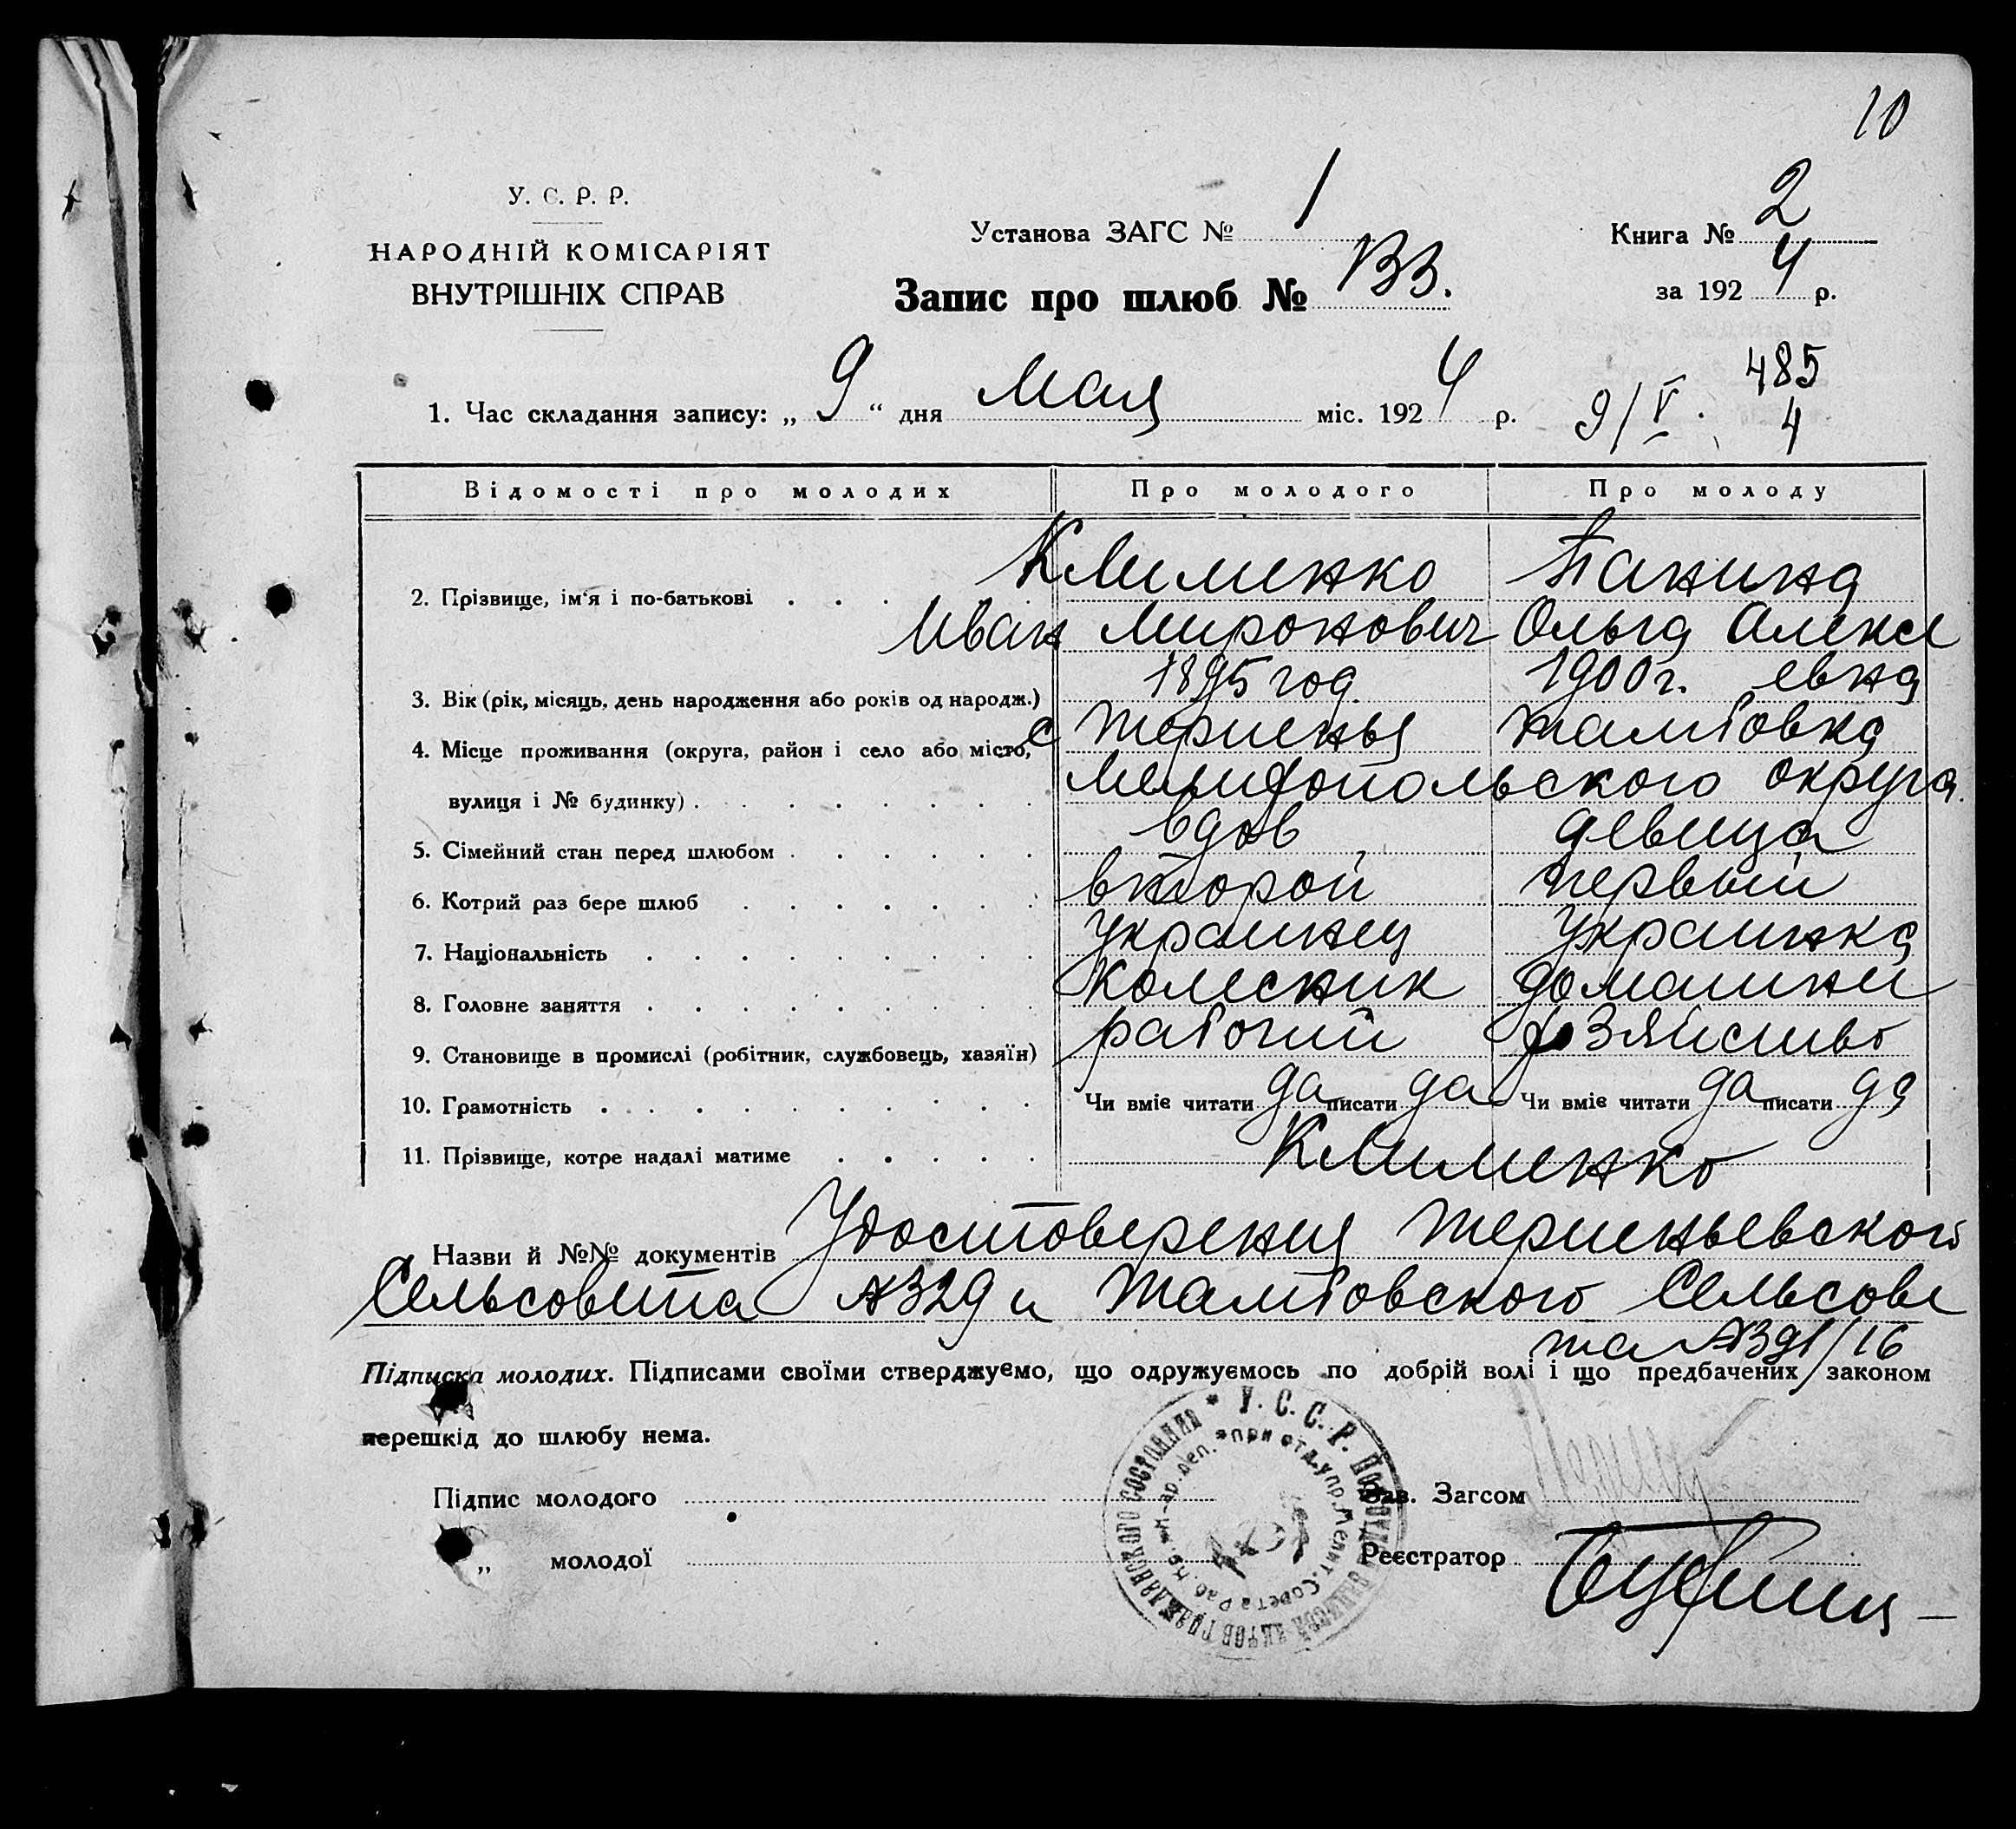 10
У. С. Р. Р.
НАРОДНІЙ КОМІСАРІЯТ
ВНУТРІШНІХ СПРАВ
Установа ЗАГС № 1
Книга № 2
Запис про шлюб № 133.
за 1924 р.
1. Час складання запису: „ 9 “ дня Мая міс. 1924 р.
9/V. 485
4
Відомості про молодих Про молодого Про молоду
2. Прізвище, ім'я і по-батькові Клименко Панина
Иван Миронович Ольга Алексе
3. Вік (рік, місяць, день народження або років од народж.) 1895 год 1900 г. евна
4. Місце проживання (округа, район і село або місто, с Терпенья Тамбовка
вулиця і № будинку) Мелитопольского округа.
5. Сімейний стан перед шлюбом вдов девица
6. Котрий раз бере шлюб второй первый
7. Національність украинец украинка
8. Головне заняття Колесник домашнее
9. Становище в промислі (робітник, службовець, хазяїн) рабочий хозяйство
10. Грамотність Чи вміє читати да писати да Чи вміє читати да писати да
11. Прізвище, котре надалі матиме Клименко
Назви й №№ документів Удостоверения Терпеньевского
Сельсовета №329 и Тамбовского Сельсове
та №391/16
Підписка молодих. Підписами своїми стверджуємо, що одружуємось по добрій волі і що предбачених законом
перешкід до шлюбу нема.
Підпис молодого
Зав. Загсом
„ молодої
Реєстратор
* У. С. С. Р. записей актов гражданского состояния
* при отд. Упр. Мелит. Совета Раб.